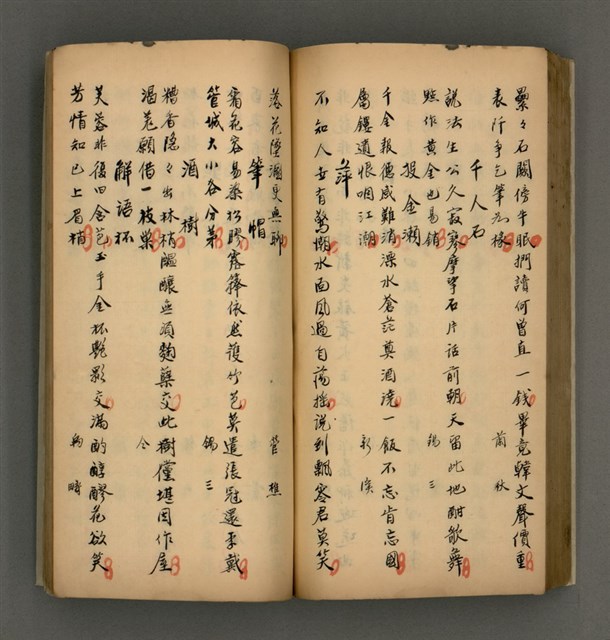 纍々石闕傍牛眠捫讀何曾直一錢畢竟韓文聲價重
表阡爭乞筆如椽　蘭秋
千人石
說法生公久寂寥摩挲石片話前朝天留此地酣歌舞
點作黃金也易銷　錫三
投金瀨
千金報德感難消溧水蒼茫奠酒澆一飯不忘肯忘國
屬鏤遺恨咽江潮　新漢
萍
不知人世有驚慚水面風過自蕩搖說到飄零君莫笑
落花墮溷更無聊　管樵
筆帽
霜花容易染松膠露籜依然護竹苞莫遣張冠還李戴
管城大小各分茅　錫三
酒樹
糟香隱々出林梢醞釀無須麴櫱交此樹僅堪因作屋
渴羌願借一枝巢　仝
解語杯
芙蓉非復口含苞玉手金杯艷影交滿酌醇醪花欲笑
芳情知已上眉梢　時